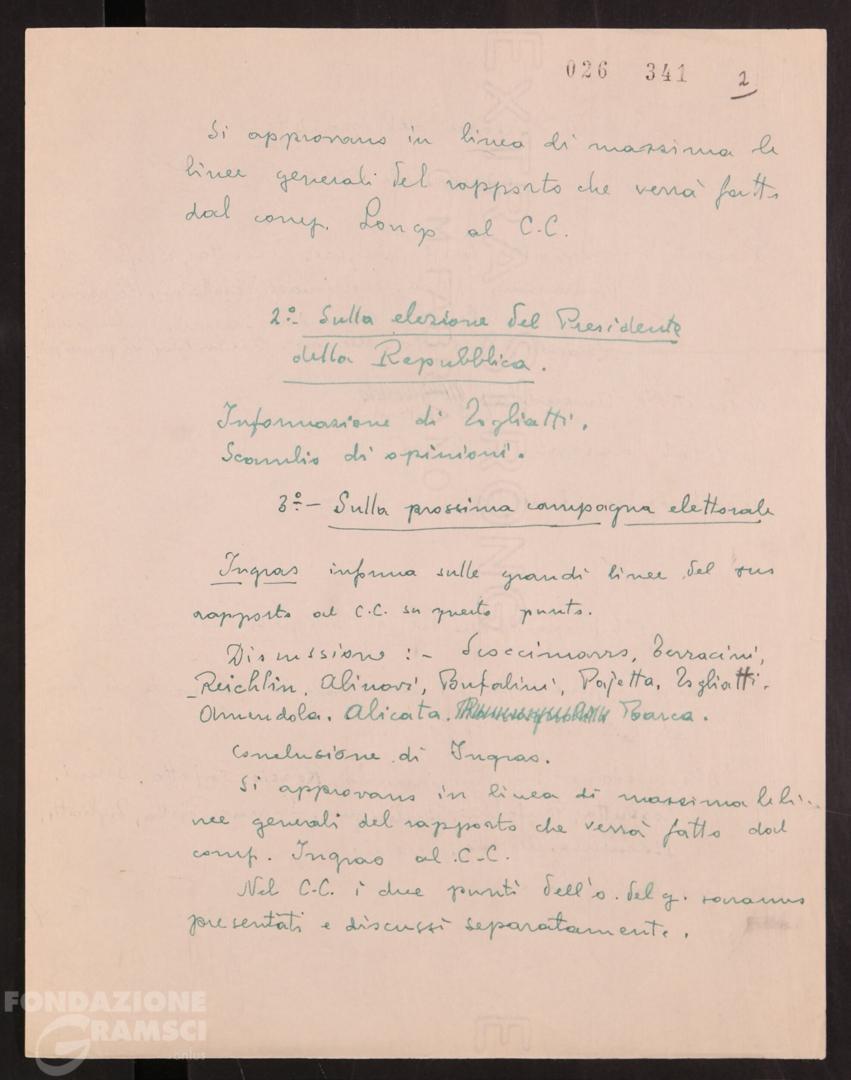 026 341 2
Si approvano in linea di massima le
linee generali del rapporto che verrà fatto
dal comp. Longo al C.C.
2º- Sulla elezione del Presidente
della Repubblica.
Informazione di Togliatti.
Scambio di opinioni.
3º- Sulla prossima campagna elettorale
Ingrao informa sulle grandi linee del suo
rapporto al C.C. su questo punto.
Discussione :- Scoccimarro, Terracini,
Reichlin, Alinovi, Bufalini, Pajetta, Togliatti.
Amendola. Alicata. Barca.
Conclusione di Ingrao.
Si approvano in linea di massima le li-
nee generali del rapporto che verrà fatto dal
comp. Ingrao al C.C.
Nel C.C. i due punti dell'o. del g. saranno
presentati e discussi separatamente.
FONDAZIONE
GRAMSCI
onlus